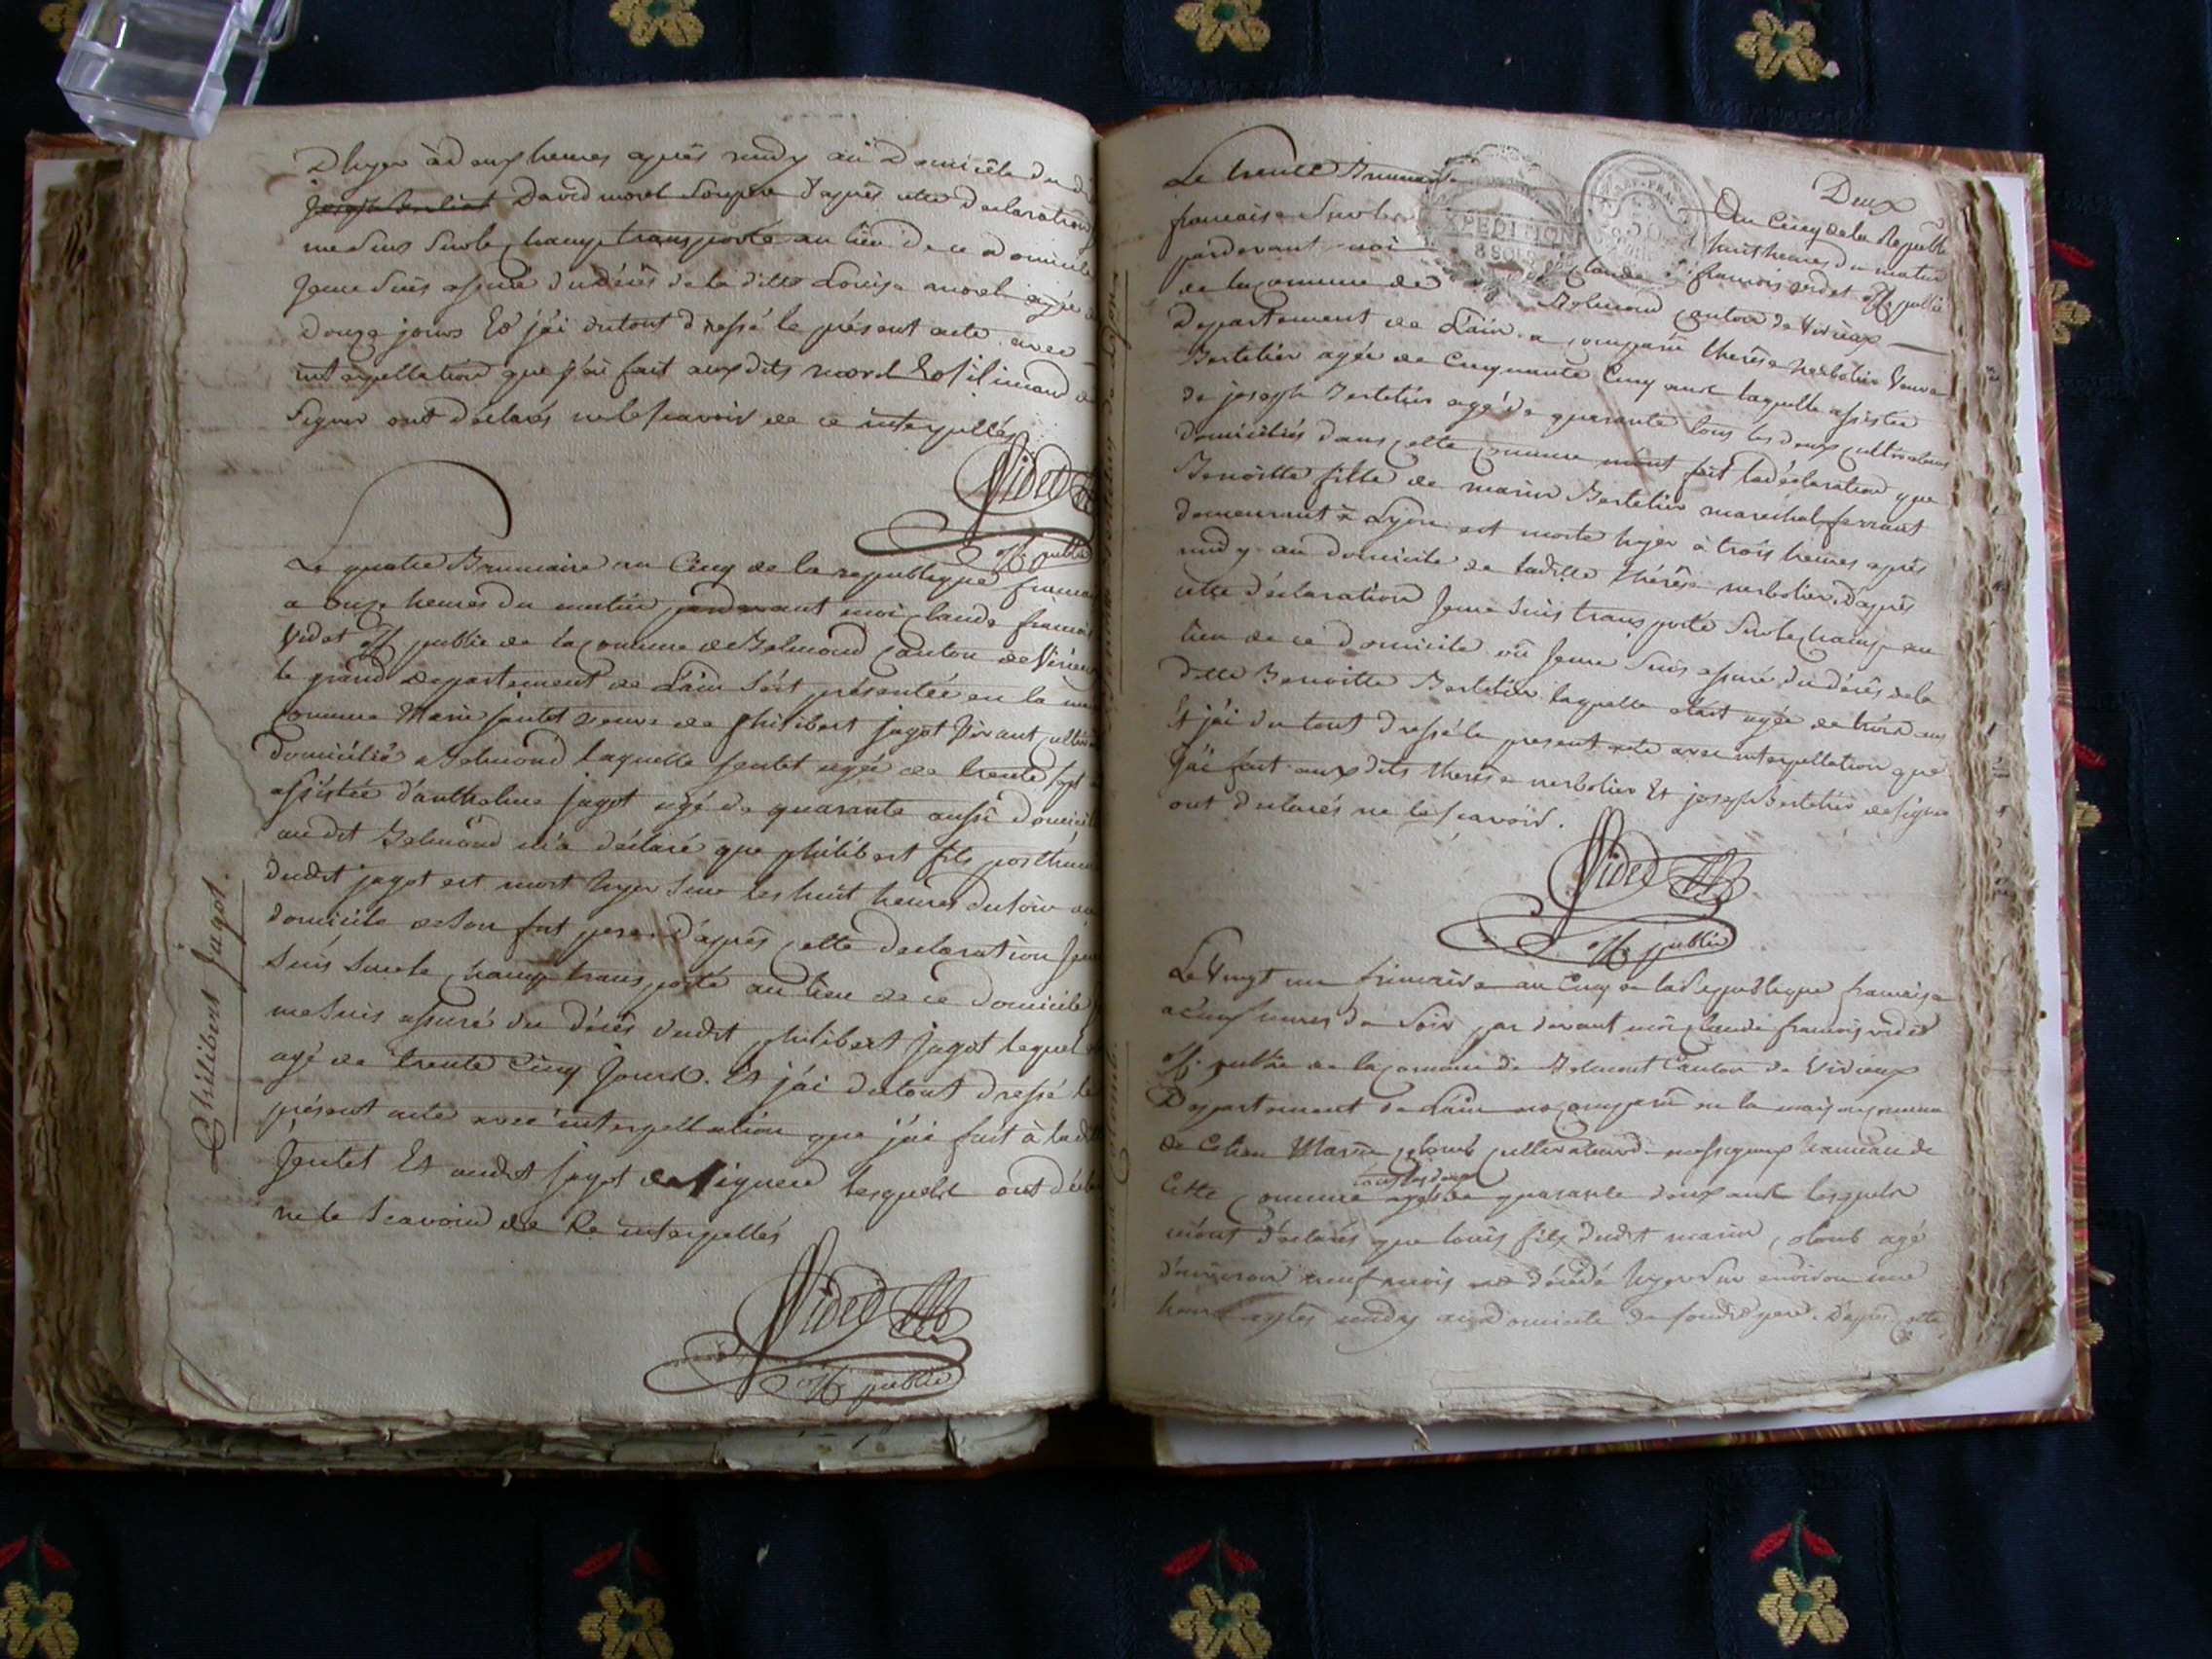 D'hyer à deux heures après midy au Domicile du d
Joseph Berliat David morel Son père D'après cette declaration
me Suis Sur le champ transporté au lieu de ce domicile
Je me Suis assuré du décés de la ditte Louise morel agée de
Douze jours Et j'ai du tout dressé le présent acte avec
interpellation que j'ai fait aux dits morel Et
Signer ont déclarés ne le scavoir de ce interpellés
Videt
Off. public
Le quatre Brumaire an Cinq de la republique francai
a onze heures du matin pardevant moi Claude francois
Videt off public de la commune de Belmond Canton de Virieu
le grand departement de L'ain s'est présentée en la m
commune Marie Jentet veuve de philibert jagot Vivant cultiv
domicilié a Belmond laquelle Jentet agée de trente sept
assistée d'anthelme jagot agé de quarante aussi domicil
audit Belmond m'a déclaré que philibert fils posthum
dudit jagot est mort hyer Sur les huit heures du soir au
domicile de Son fut pere. d'après cette declaration Je
Suis Sur le champ transporté au lieu de ce domicile
me Suis assuré du décés dudit philibert Jagot lequel
agé de trente Cinq jours. Et j'ai du tout dressé le
présent acte avec interpellation que j'ai fait à la d
Jentet Et audit jagot de Signer lesquels ont décl
ne le Scavoir de Ce interpellés
Videt
Off. public
Philibert Jagot.
Deux
Le trente Brumaire An Cinq de la Republ
francaise Sur les huit heures du matin
pardevant moi Claude francois videt Off public
de la Commune de Belmond Canton de Virieux
Departement de L'ain a comparu therese nerbolier Veuve
Bertelier agée de Cinquante Cinq ans laquelle assistée
de joseph Bertelier agé de quarante tous les deux cultivateurs
domiciliés dans cette commune m'ont fait la déclaration que
Benoitte fille de marin Bertelier maréchal ferrant
demeurant à Lyon est morte hyer à trois heures après
midy au domicile de ladille thérèse nerbolier. d'après
cette déclaration Je me Suis transporté Sur le champ au
lieu de ce domicile où Je me Suis assuré du décés de la
ditte Benoitte Bertelier laquelle étoit agée de trois ans
Et j'ai du tout dressé le present acte avec interpellation que
J'ai fait aux dits therese nerbolier Et joseph Bertelier de Signer
ont déclarés ne le scavoir.
Videt
Off. public
Le Vingt un frimaire an Cinq de la Republique francaise
a Cinq heures du Soir par devant moi Claude francois videt
off. public de la commune de Belmont Canton de Virieux
Departement de L'ain a comparu en la maison commune
de Ce lieu Marin Colomb cultivateur hameau de
Cette Commune tous les deux agés de quarante deux ans lesquels
m'ont déclarés que louis fils dudit marin Colomb agé
d'environ neuf mois est décédé hyer Sur environ une
heure après midy au domicile de Son dit pere. D'après cette